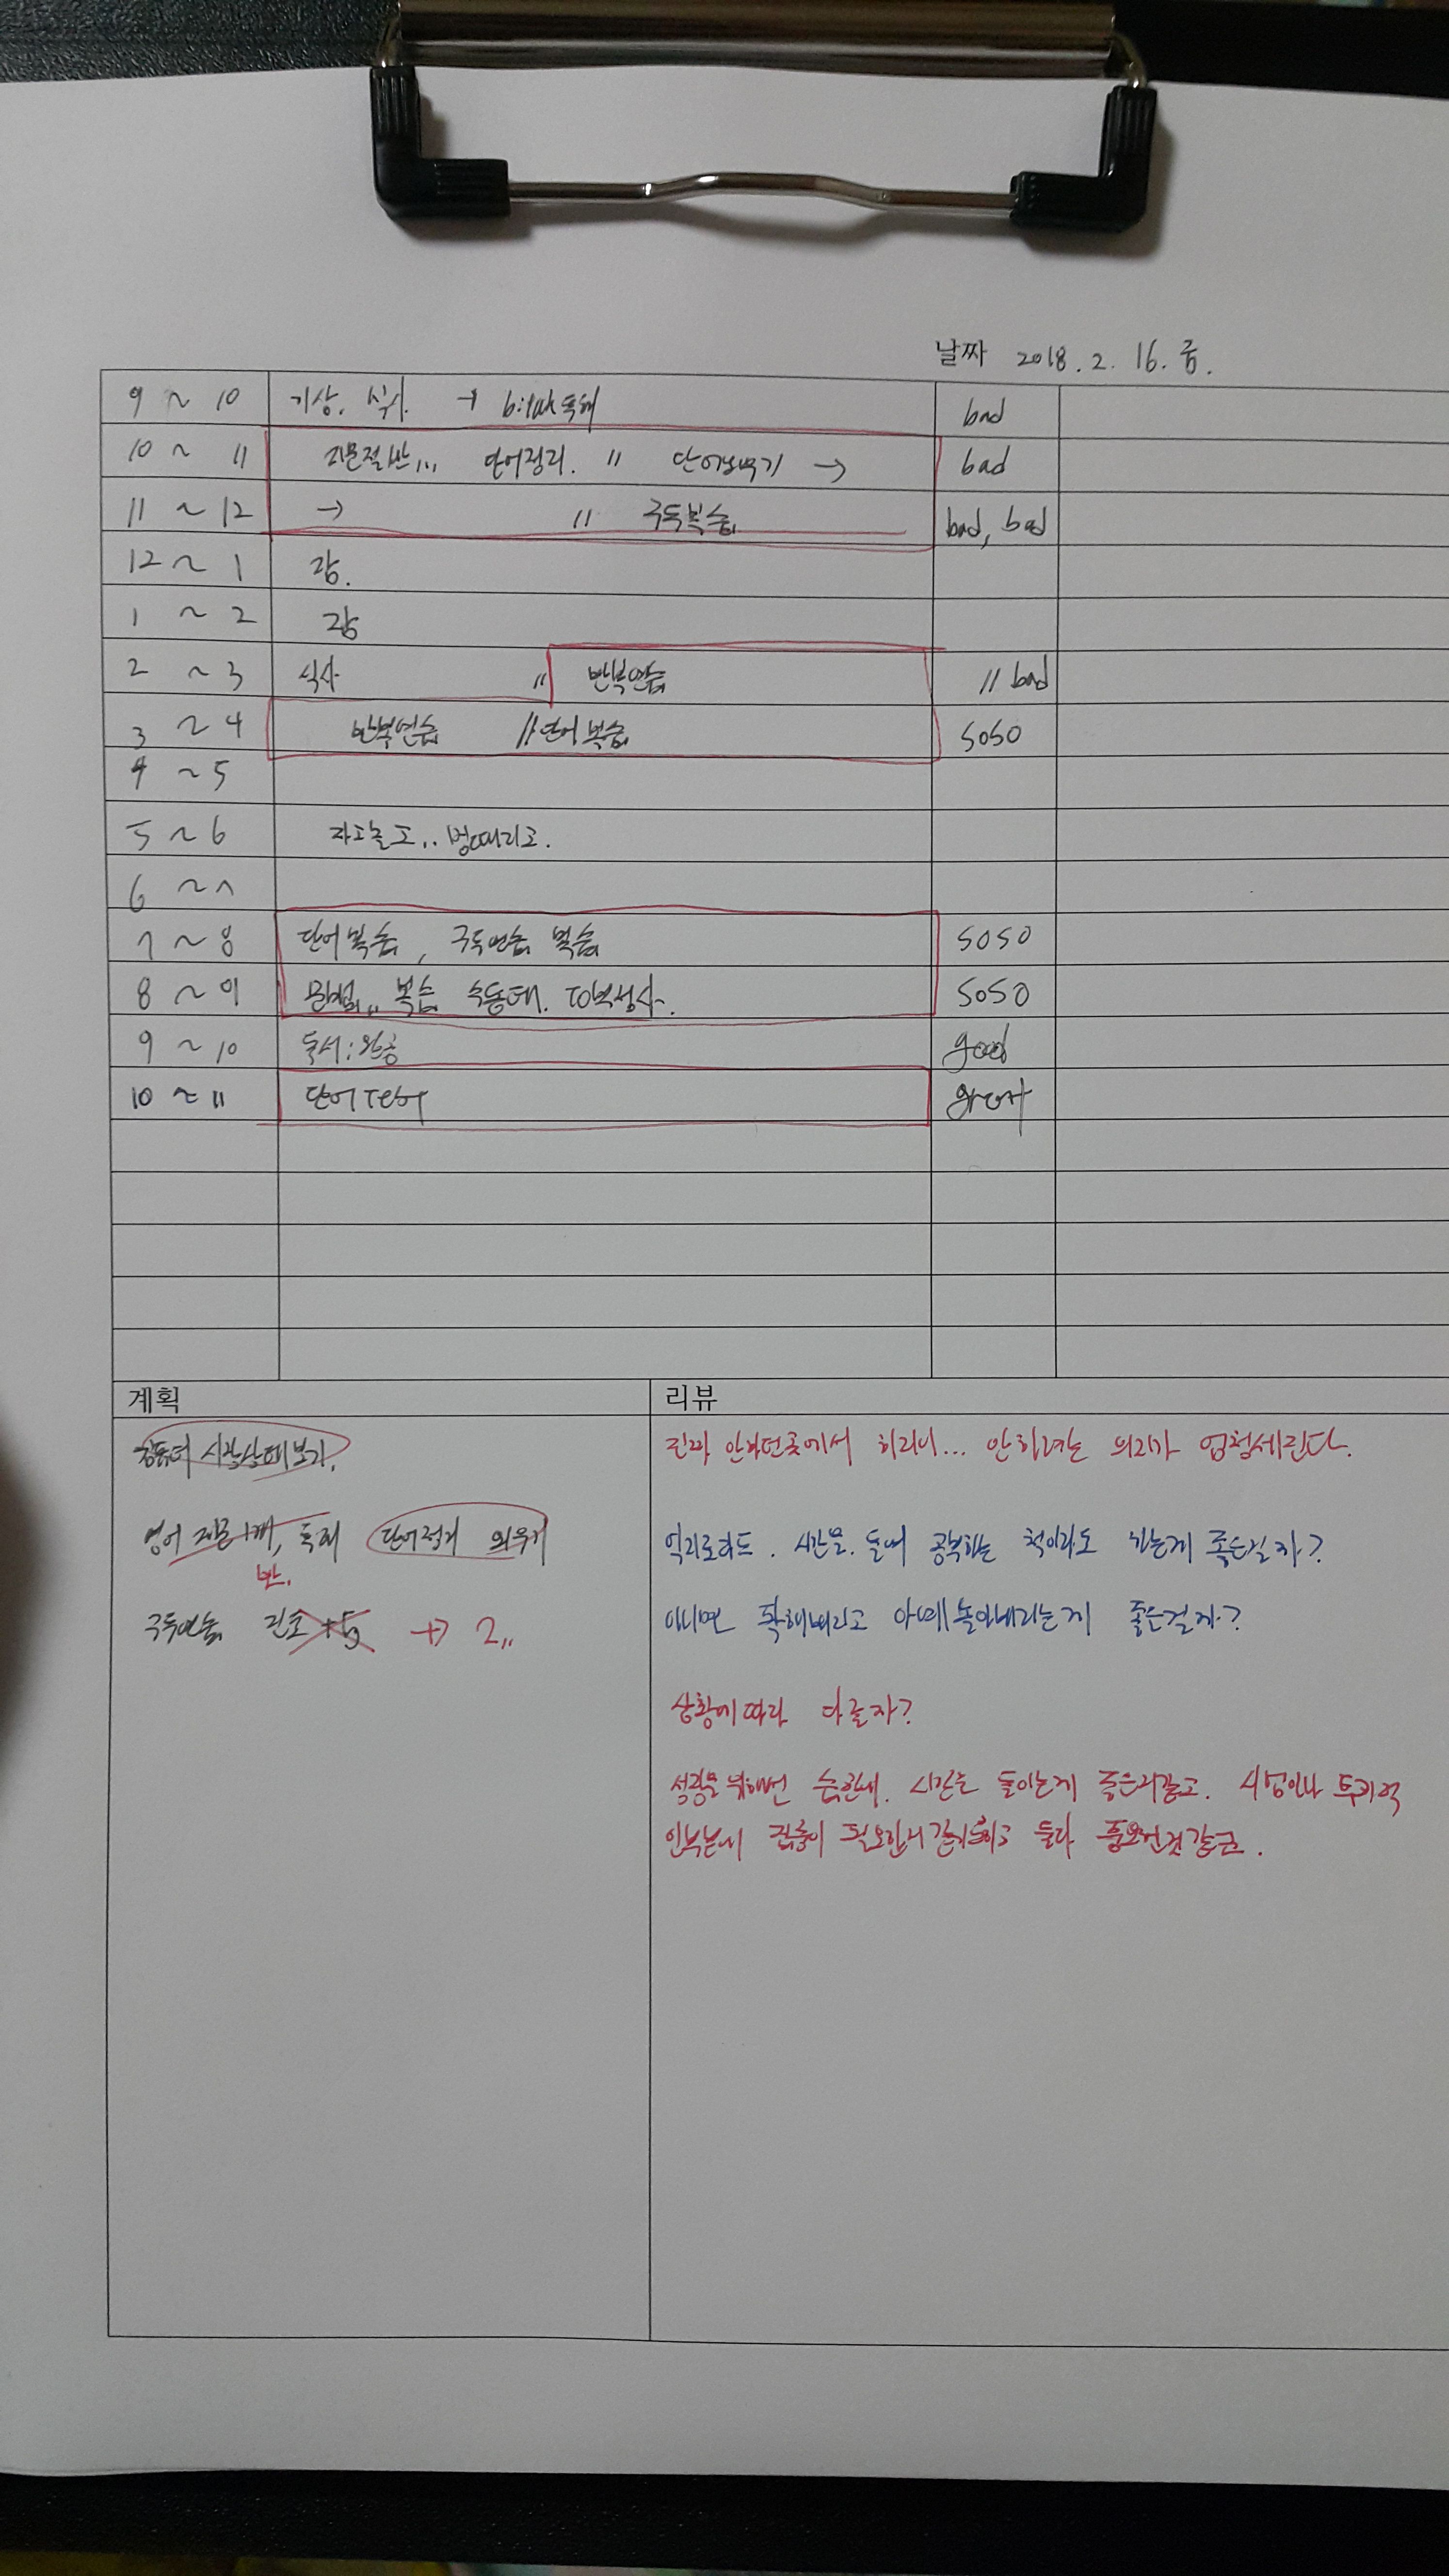 날짜 2018. 2. 16. 금.
9 ~ 10 기상. 식사. → 독해 bad
10 ~ 11 지문절반... 단어정리. // 단어외우기 → bad
11 ~ 12 → // 구동복습 bad, bad
12 ~ 1 잠.
1 ~ 2 잠
2 ~ 3 식사 // 반복연습 // bad
3 ~ 4 반복연습 // 단어복습 soso
4 ~ 5
5 ~ 6 자고놀고.. 멍때리고.
6 ~ 7
7 ~ 8 단어복습, 구동연습 복습 soso
8 ~ 9 문법.. 복습 수동태. TO부정사. soso
9 ~ 10 독서: good
10 ~ 11 단어 TEST great
계획
컴퓨터 시작상태보기.
영어 지문 1개, 독해 단어적기 외우기
반.
구동연습 +5 → 2..
리뷰
진짜 안하던곳에서 하려니... 안하려는 의지가 엄청세진다.
억지로라도. 시간을. 들여 공부하는 척이라도 하는게 좋은걸까?
아니면 확해버리고 아예 놀아버리는게 좋은걸까?
상황에따라 다를까?
성장을위해선 시간을 들이는게 좋은거같고. 시험이나
집중이 필요한거 둘다 중요한것같군.